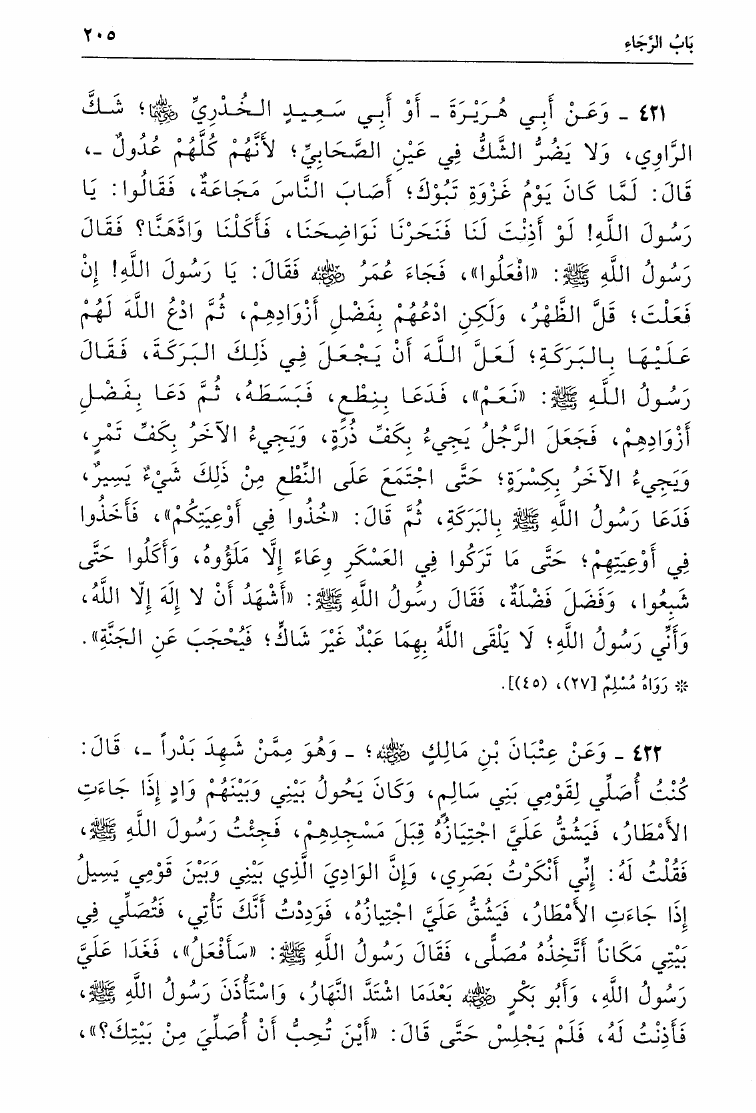 بَابُ الرَّجَاءِ ٢٠٥
٤٢١ ـ وَعَنْ أَبِي هُرَيْرَةَ ـ أَوْ أَبِي سَعِيدٍ الخُدْرِيِّ ﷺ؛ شَكَّ
الرَّاوِي، وَلا يَضُرُّ الشَّكُّ فِي عَيْنِ الصَّحَابِيِّ؛ لأَنَّهُمْ كُلَّهُمْ عُدُولٌ ـ،
قَالَ: لَمَّا كَانَ يَوْمُ غَزْوَةِ تَبُوْكَ؛ أَصَابَ النَّاسَ مَجَاعَةٌ، فَقَالُوا: يَا
رَسُولَ اللَّهِ! لَوْ أَذِنْتَ لَنَا فَنَحَرْنَا نَوَاضِحَنَا، فَأَكَلْنَا وَادَّهَنَّا؟ فَقَالَ
رَسُولُ اللَّهِ ﷺ: «افْعَلُوا»، فَجَاءَ عُمَرُ رضي الله عنه فَقَالَ: يَا رَسُولَ اللَّهِ! إِنْ
فَعَلْتَ؛ قَلَّ الظَّهْرُ، وَلَكِنِ ادْعُهُمْ بِفَضْلِ أَزْوَادِهِمْ، ثُمَّ ادْعُ اللَّهَ لَهُمْ
عَلَيْهَا بِالبَرَكَةِ؛ لَعَلَّ اللَّهَ أَنْ يَجْعَلَ فِي ذَلِكَ البَرَكَةَ، فَقَالَ
رَسُولُ اللَّهِ ﷺ: «نَعَمْ»، فَدَعَا بِنِطْعٍ، فَبَسَطَهُ، ثُمَّ دَعَا بِفَضْلِ
أَزْوَادِهِمْ، فَجَعَلَ الرَّجُلُ يَجِيءُ بِكَفِّ ذُرَةٍ، وَيَجِيءُ الآخَرُ بِكَفِّ تَمْرٍ،
وَيَجِيءُ الآخَرُ بِكِسْرَةٍ؛ حَتَّى اجْتَمَعَ عَلَى النِّطْعِ مِنْ ذَلِكَ شَيْءٌ يَسِيرٌ،
فَدَعَا رَسُولُ اللَّهِ ﷺ بِالبَرَكَةِ، ثُمَّ قَالَ: «خُذُوا فِي أَوْعِيَتِكُمْ»، فَأَخَذُوا
فِي أَوْعِيَتِهِمْ؛ حَتَّى مَا تَرَكُوا فِي العَسْكَرِ وِعَاءً إِلَّا مَلَؤُوهُ، وَأَكَلُوا حَتَّى
شَبِعُوا، وَفَضَلَ فَضْلَةٌ، فَقَالَ رسُولُ اللَّهِ ﷺ: «أَشْهَدُ أَنْ لا إِلَهَ إِلَّا اللَّهُ،
وَأَنِّي رَسُولُ اللَّهِ؛ لَا يَلْقَى اللَّهُ بِهِمَا عَبْدٌ غَيْرَ شَاكٍّ؛ فَيُحْجَبَ عَنِ الجَنَّةِ».
* رَوَاهُ مُسْلِمٌ [(٢٧)، (٤٥)].
٤٢٢ ـ وَعَنْ عِتْبَانَ بْنِ مَالِكٍ رضي الله عنه؛ ـ وَهُوَ مِمَّنْ شَهِدَ بَدْراً ـ، قَالَ:
كُنْتُ أُصَلِّي لِقَوْمِي بَنِي سَالِمٍ، وَكَانَ يَحُولُ بَيْنِي وَبَيْنَهُمْ وَادٍ إِذَا جَاءَتِ
الأَمْطَارُ، فَيَشُقُّ عَلَيَّ اجْتِيَازُهُ قِبَلَ مَسْجِدِهِمْ، فَجِئْتُ رَسُولَ اللَّهِ ﷺ،
فَقُلْتُ لَهُ: إِنِّي أَنْكَرْتُ بَصَرِي، وَإِنَّ الوَادِيَ الَّذِي بَيْنِي وَبَيْنَ قَوْمِي يَسِيلُ
إِذَا جَاءَتِ الأَمْطَارُ، فَيَشُقُّ عَلَيَّ اجْتِيَازُهُ، فَوَدِدْتُ أَنَّكَ تَأْتِي، فَتُصَلِّي فِي
بَيْتِي مَكَاناً أَتَّخِذُهُ مُصَلَّى، فَقَالَ رَسُولُ اللَّهِ ﷺ: «سَأَفْعَلُ»، فَغَدَا عَلَيَّ
رَسُولُ اللَّهِ، وَأَبُو بَكْرٍ رضي الله عنه بَعْدَمَا اشْتَدَّ النَّهَارُ، وَاسْتَأْذَنَ رَسُولُ اللَّهِ ﷺ،
فَأَذِنْتُ لَهُ، فَلَمْ يَجْلِسْ حَتَّى قَالَ: «أَيْنَ تُحِبُّ أَنْ أُصَلِّيَ مِنْ بَيْتِكَ؟»،